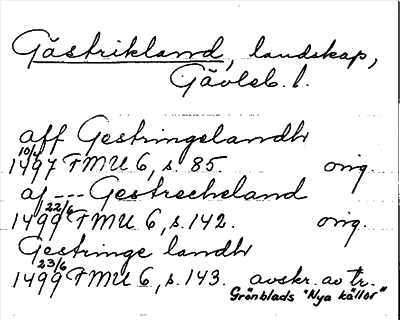 Gästrikland, landskap,
Gävleb. l.
aff Gestringelandh
10/4
1497 FMU 6, s. 85. orig.
af --- Gestrecheland
22/6
1499 FMU 6, s. 142. orig.
Gestringe landh
23/6
1499 FMU 6, s. 143. avskr. av tr.
Grönblads "Nya källor"